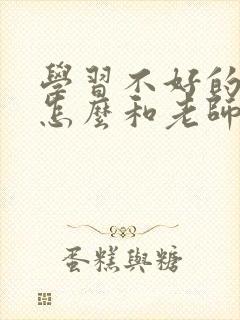 學習不好的
怎麼和老師
蛋糕與糖